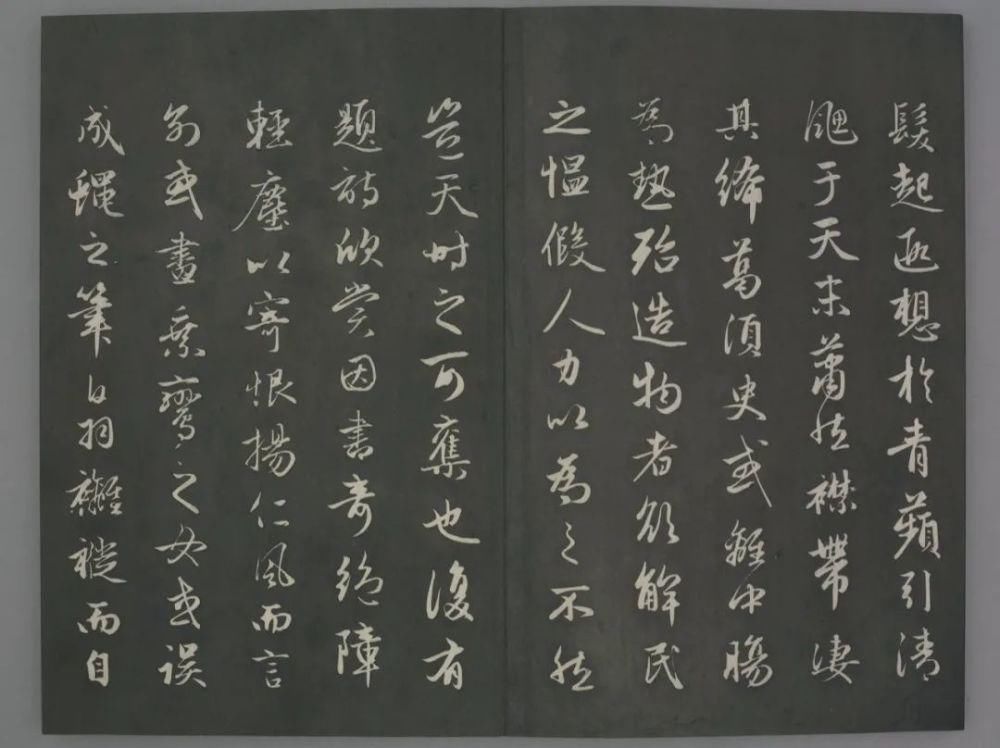 髮起遐想於青蘋引清
颸于天末蕭然襟帶凄
其絺葛須臾或離中暍
為熱殆造物者欲解民
之慍假人力以為之不然
豈天時之可奪也復有
題詩欣賞因書奇絕障
輕塵以寄恨揚仁風而言
別或畫乘鸞之女或誤
成蠅之筆白羽褷而自